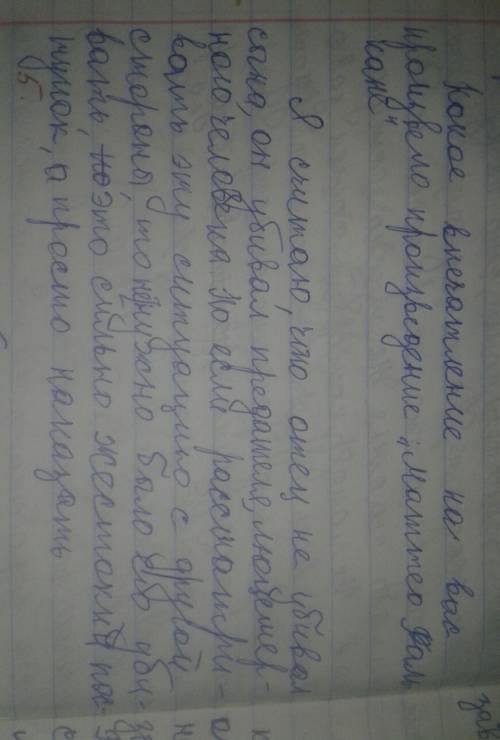 Какое впечатление на вас
произвело произведение „Маттео Фаль
кане"
Я считаю, что отец не убивал
сына, он убивал предателя, лицемер-
ного человека. Но если рассматри-
вать эту ситуацию с другой
стороны, то можно было его уби-
вать, поэто сильно жестокий по-
ступок, а просто наказать
5.
зав